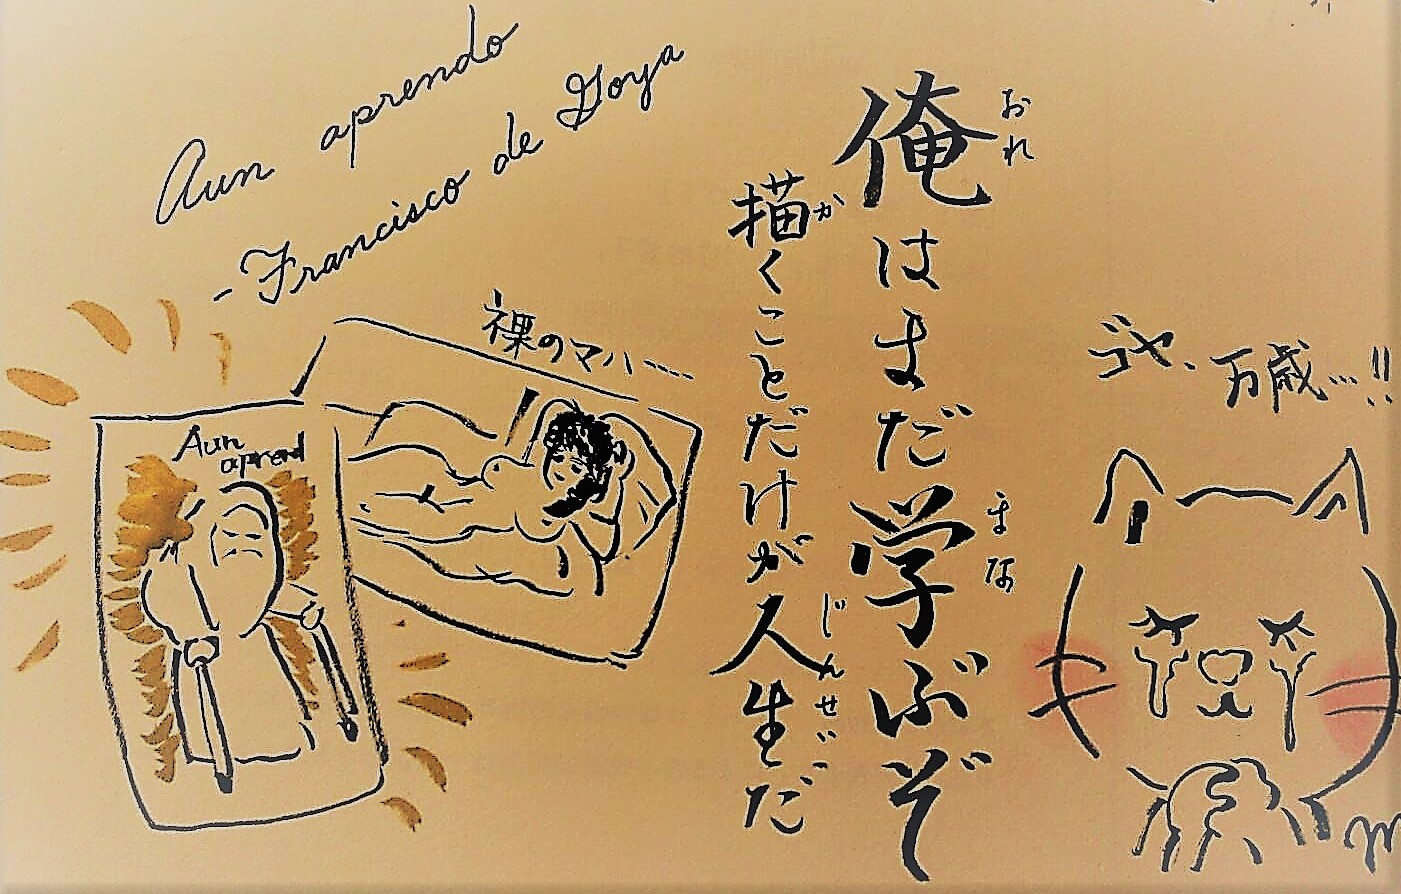 Aun aprendo
- Francisco de Goya
俺はまだ学ぶぞ
おれ
まな
描くことだけが人生だ
か
じんせい
裸のマハ……
Aun
aprend
ゴヤ、万歳…!!